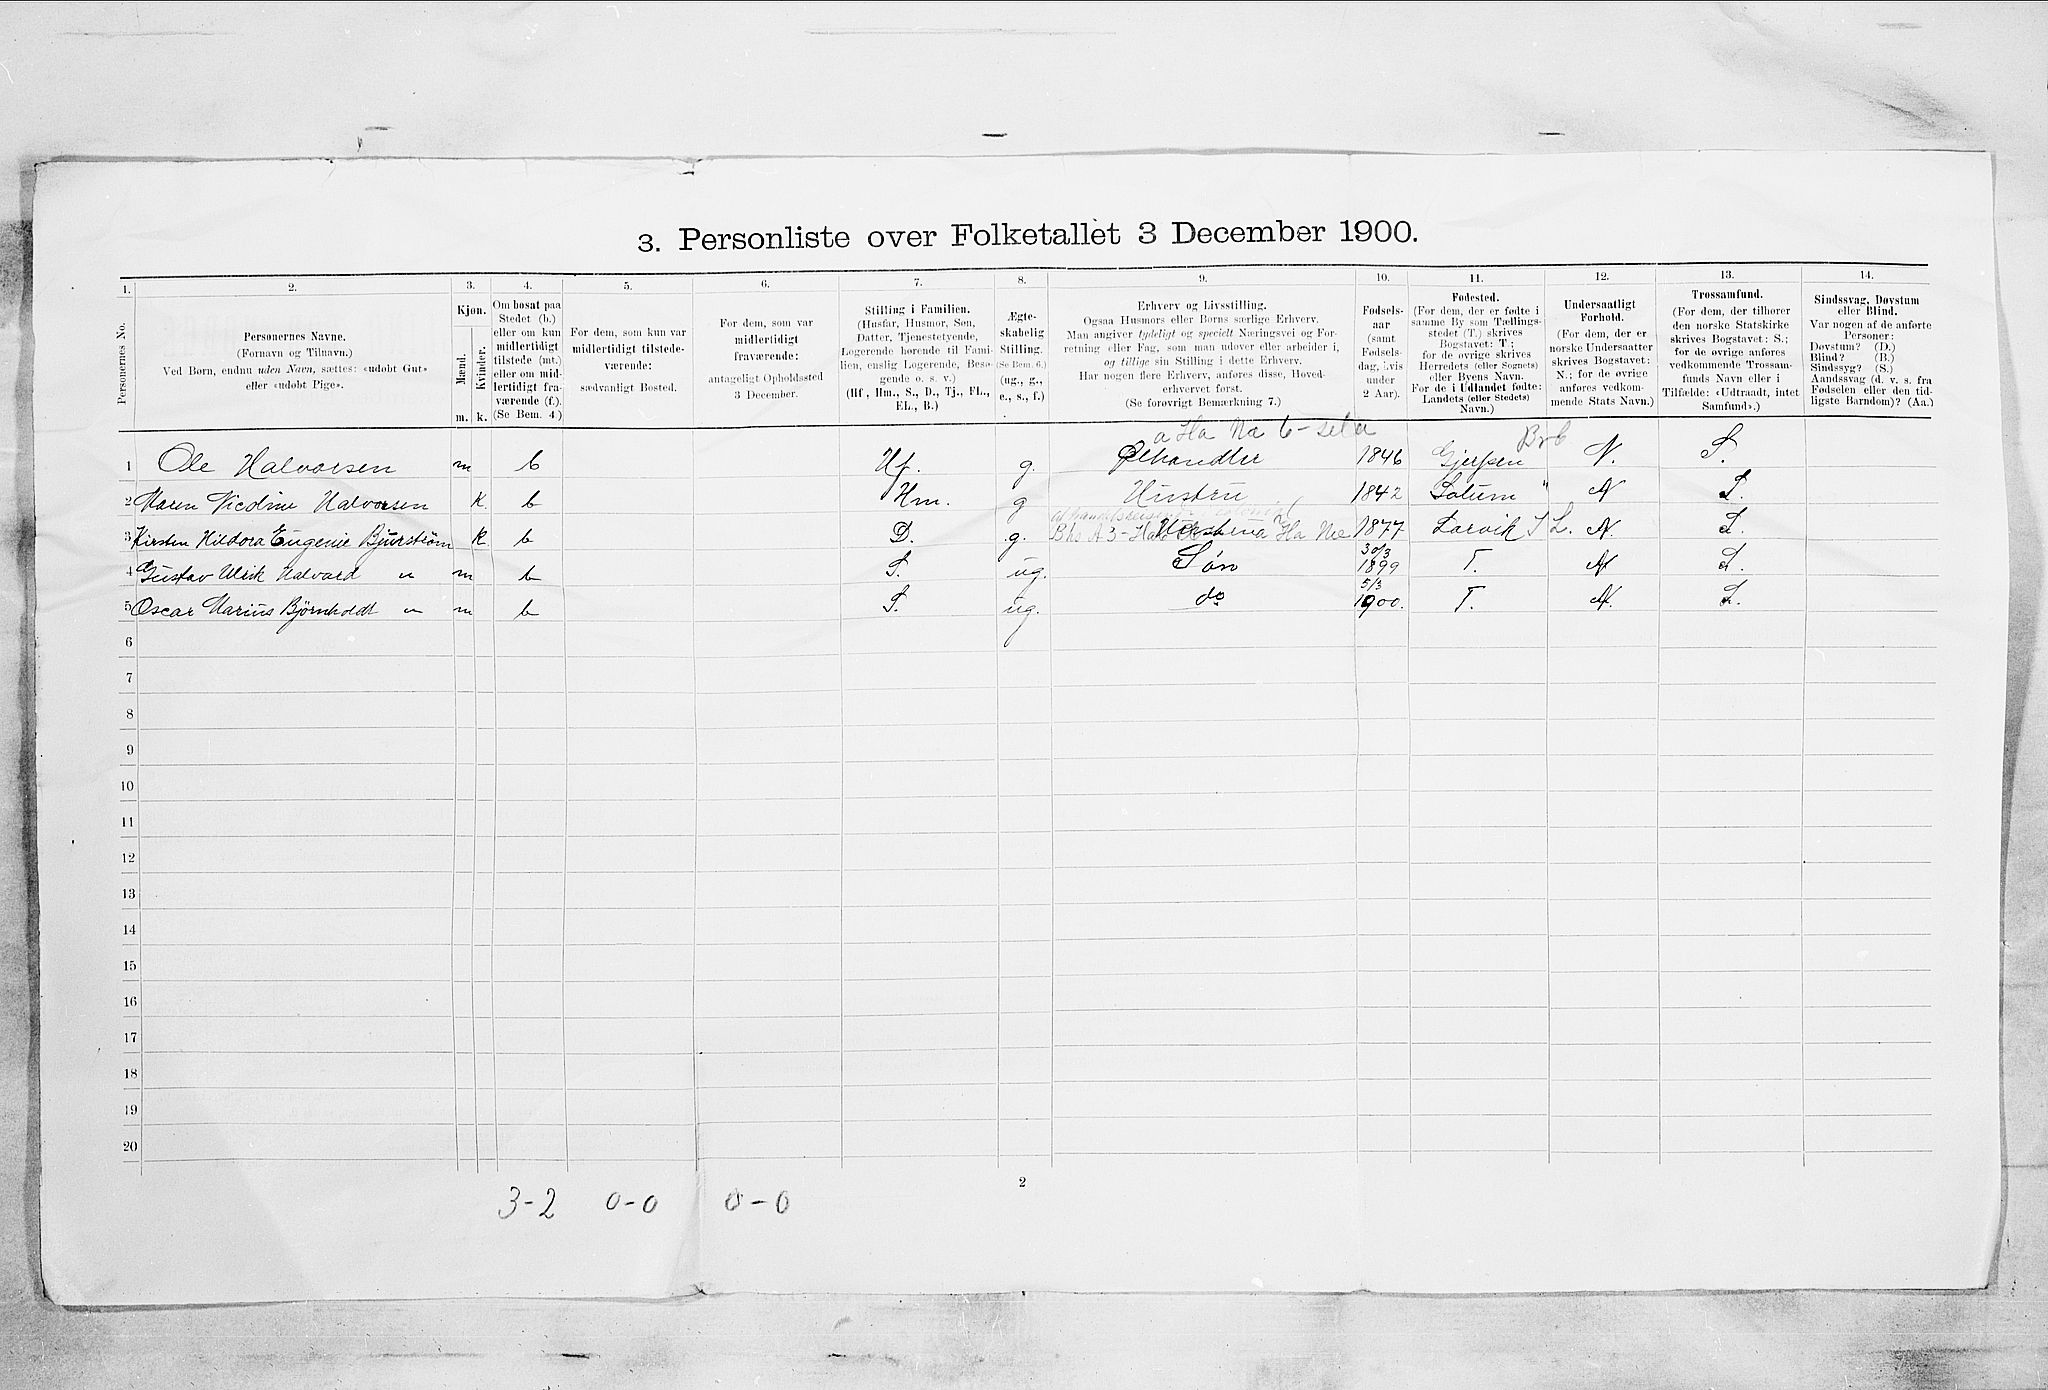 3. Personliste over Folketallet 3 December 1900.
1. 2. 3. 4. 5. 6. 7. 8. 9. 10. 11. 12. 13. 14.
Personernes No.
Personernes Navne.
(Fornavn og Tilnavn.)
Ved Børn, endnu uden Navn, sættes: «udøbt Gut»
eller «udøbt Pige».
Kjøn.
Mænd.
Kvinder.
m. k.
Om bosat paa
Stedet (b.)
eller om kun
midlertidigt
tilstede (mt.)
eller om mid-
lertidigt fra-
værende (f.).
(Se Bem. 4.)
For dem, som kun var
midlertidigt tilstede-
værende:
sædvanligt Bosted.
For dem, som var
midlertidigt
fraværende:
antageligt Opholdssted
3 December.
Stilling i Familien.
(Husfar, Husmor, Søn,
Datter, Tjenestetyende,
Logerende hørende til Fami-
lien, enslig Logerende, Besø-
gende o. s. v.)
(Hf, Hm., S., D., Tj., FL.,
EL., B.)
Ægte-
skabelig
Stilling.
(Se Bem. 6.)
(ug., g.,
e., s., f.)
Erhverv og Livsstilling.
Ogsaa Husmors eller Børns særlige Erhverv.
Man angiver tydeligt og specielt Næringsvei og For-
retning eller Fag, som man udøver eller arbeider i,
og tillige sin Stilling i dette Erhverv.
Har nogen flere Erhverv, anføres disse, Hoved-
erhvervet først.
(Se forøvrigt Bemærkning 7.)
Fødsels-
aar
(samt
Fødsels-
dag, hvis
under
2 Aar).
Fødested.
(For dem, der er fødte i
samme By som Tællings-
stedet (T.) skrives
Bogstavet: T.;
for de øvrige skrives
Herredets (eller Sognets)
eller Byens Navn.
For de i Udlandet fødte:
Landets (eller Stedets)
Navn.)
Undersaatligt
Forhold.
(For dem, der er
norske Undersaatter
skrives Bogstavet:
N.; for de øvrige
anføres vedkom-
mende Stats Navn.)
Trossamfund.
(For dem, der tilhører
den norske Statskirke
skrives Bogstavet: S.;
for de øvrige anføres
vedkommende Trossam-
funds Navn eller i
Tilfælde: «Udtraadt, intet
Samfund».)
Sindssvag, Døvstum
eller Blind.
Var nogen af de anførte
Personer:
Døvstum? (D.)
Blind? (B.)
Sindssyg? (S.)
Aandssvag (d. v. s. fra
Fødselen eller den tid-
ligste Barndom)? (Aa.)
1 Ole Halvorsen m b Hf. g. Ølhandler 1846 Gjerpen N. S.
2 Maren Nicoline Halvorsen K b Hm. g Hustru 1842 Solum " N S.
3 Kirsten Hildora Eugenie Bjurström K b D. g. 1877 Larvik N. S.
30/3
4 Gustav Ulrik Halvard " m b S. ug. Søn 1899 T. N S.
5/3
5 Oscar Marius Björnholdt " m b S. ug. do 1900. T. N. S.
6
7
8
9
10
11
12
13
14
15
16
17
18
19
20
2
3-2 0-0 0-0